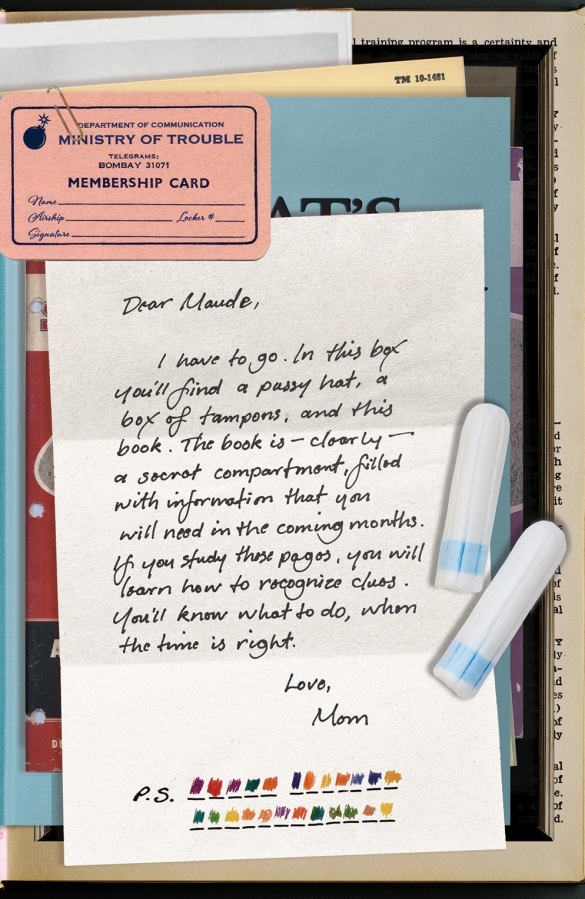 l training program is a certainty and
TM 10-1481
DEPARTMENT OF COMMUNICATION
MINISTRY OF TROUBLE
TELEGRAMS:
BOMBAY 31071
MEMBERSHIP CARD
Name
Airship Locker #
Signature
AT'S
Dear Maude,
I have to go. In this box
you'll find a pussy hat, a
box of tampons, and this
book. The book is – clearly –
a secret compartment, filled
with information that you
will need in the coming months.
If you study these pages, you will
learn how to recognize clues.
You'll know what to do, when
the time is right.
Love,
Mom
P.S.